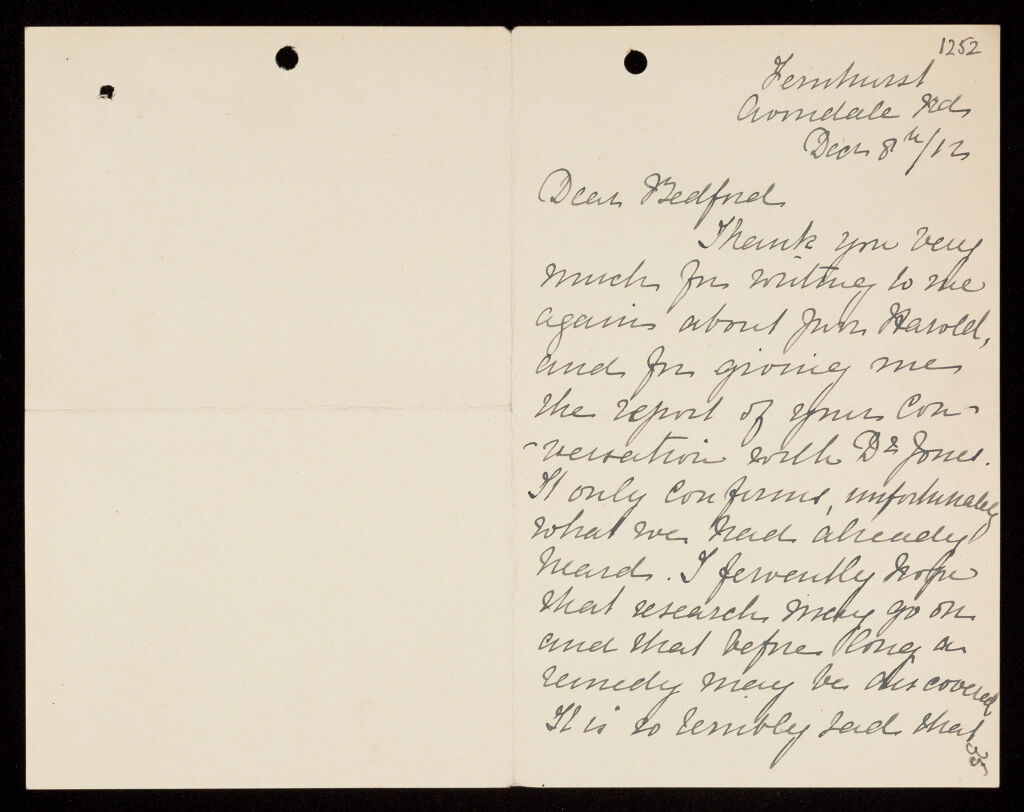 1252
Fernhurst
Avondale Rd
Decr 8th/12
Dear Bedford
Thank you very
much for writing to me
again about poor Harold,
and for giving me
the report of your con-
-versation with Dr Jones.
It only confirms, unfortunately
what we had already
heard. I fervently hope
that research may go on
and that before long a
remedy may be discovered
It is so terribly sad that